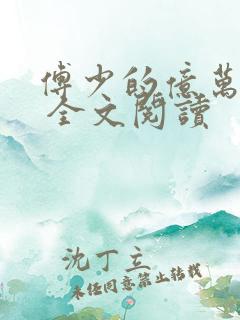 傅少的億萬
全文閱讀
沈丁立
未经同意禁止转载